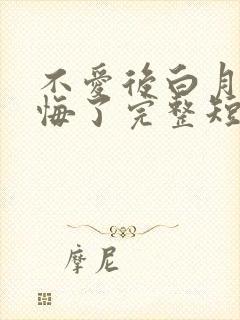 不愛後白月
悔了完整短
摩尼